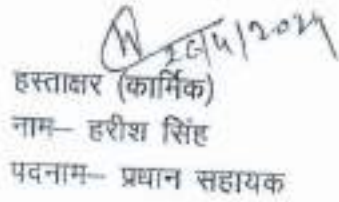 26/4/2024
हस्ताक्षर (कार्मिक)
नाम– हरीश सिंह
पदनाम– प्रधान सहायक